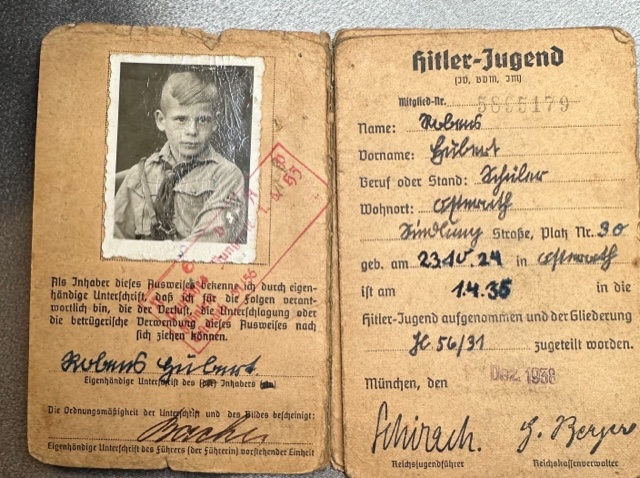 Als Inhaber dieses Ausweises bekenne ich durch eigen-
händige Unterschrift, daß ich für die Folgen verant-
wortlich bin, die der Verlust, die Unterschlagung oder
die betrügerische Verwendung dieses Ausweises nach
sich ziehen können.
Robens Hubert
Eigenhändige Unterschrift des Inhabers
Die Ordnungsmäßigkeit der Unterschrift und des Bildes bescheinigt:
Eigenhändige Unterschrift des Führers (der Führerin) vorstehender Einheit
Hitler-Jugend
(JV, BDM, JM)
Mitglied-Nr. 5895179
Name: Robens
Vorname: Hubert
Beruf oder Stand: Schüler
Wohnort: Osterath
Siedlung Straße, Platz Nr. 30
geb. am 23.IV.24 in Osterath
ist am 1.4.35 in die
Hitler-Jugend aufgenommen und der Gliederung
56/31 zugeteilt worden.
München, den Dez. 1938
Schirach. G. Berger
Reichsjugendführer Reichskassenverwalter